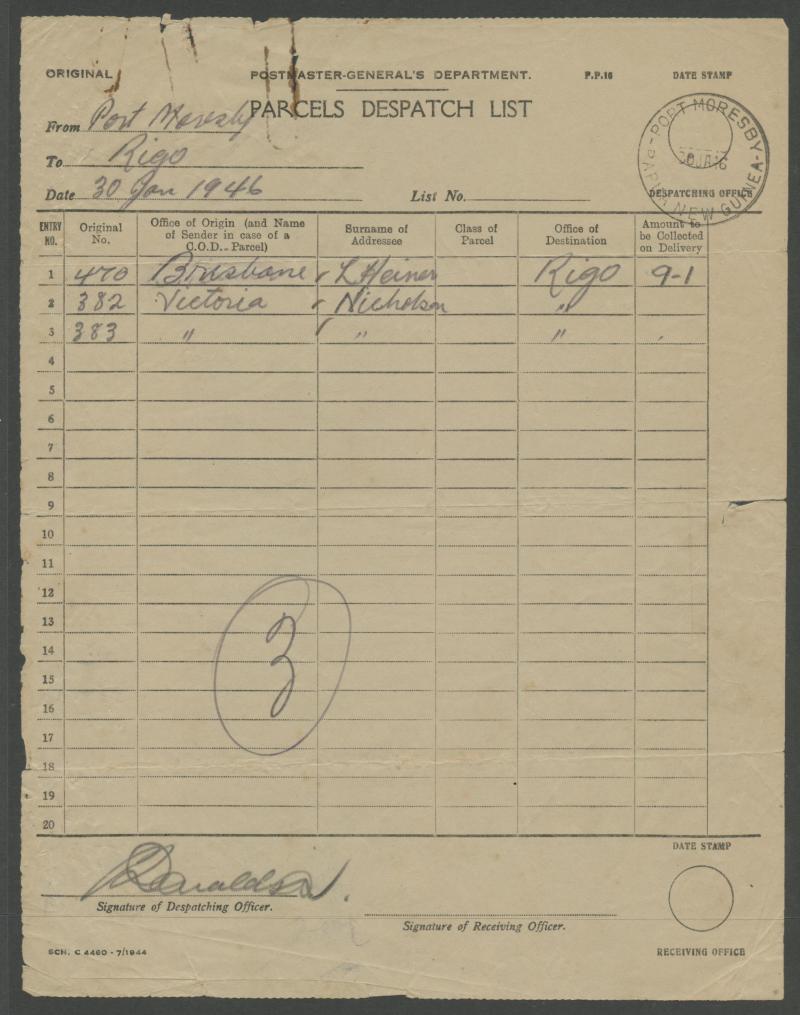 ORIGINAL POSTMASTER-GENERAL'S DEPARTMENT. P.P.16 DATE STAMP
PARCELS DESPATCH LIST
From Port Moresby
To Rigo
Date 30 Jan 1946 List No.
PORT MORESBY
30 JA 46
PAPUA - NEW GUINEA
DESPATCHING OFFICE
ENTRY NO. Original No. Office of Origin (and Name of Sender in case of a C.O.D. Parcel) Surname of Addressee Class of Parcel Office of Destination Amount to be Collected on Delivery
1 470 Brisbane ✓ L Heiner Rigo 9-1
2 382 Victoria ✓ Nicholson "
3 383 " ✓ " "
4
5
6
7
8
9
10
11
12
13
14
15
16
17
18
19
20
3
Donaldson.
Signature of Despatching Officer.
Signature of Receiving Officer.
DATE STAMP
RECEIVING OFFICE
SCH. C 4460 - 7/1944